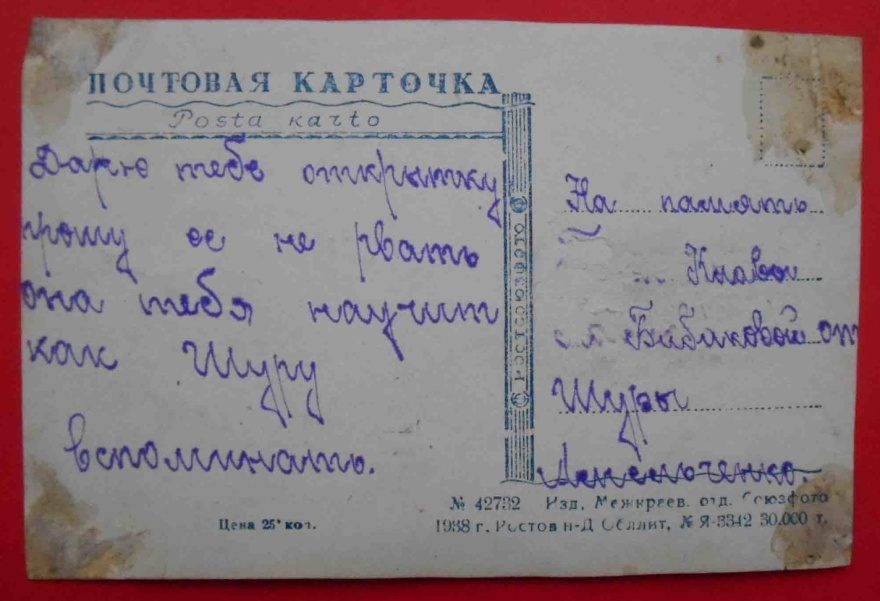 ПОЧТОВАЯ КАРТОЧКА
Posta karto
Дарю тебе открытку
прошу ее не рвать
она тебя научит
как Шуру
вспоминать.
РОСТСОЮЗФОТО
На память
Бабаковой от
Шуры
Цена 25 коп.
№ 42732 Изд. Межкраев. отд. Союзфото
1938 г. Ростов н-Д Обллит, № Я-3342 30.000 т.